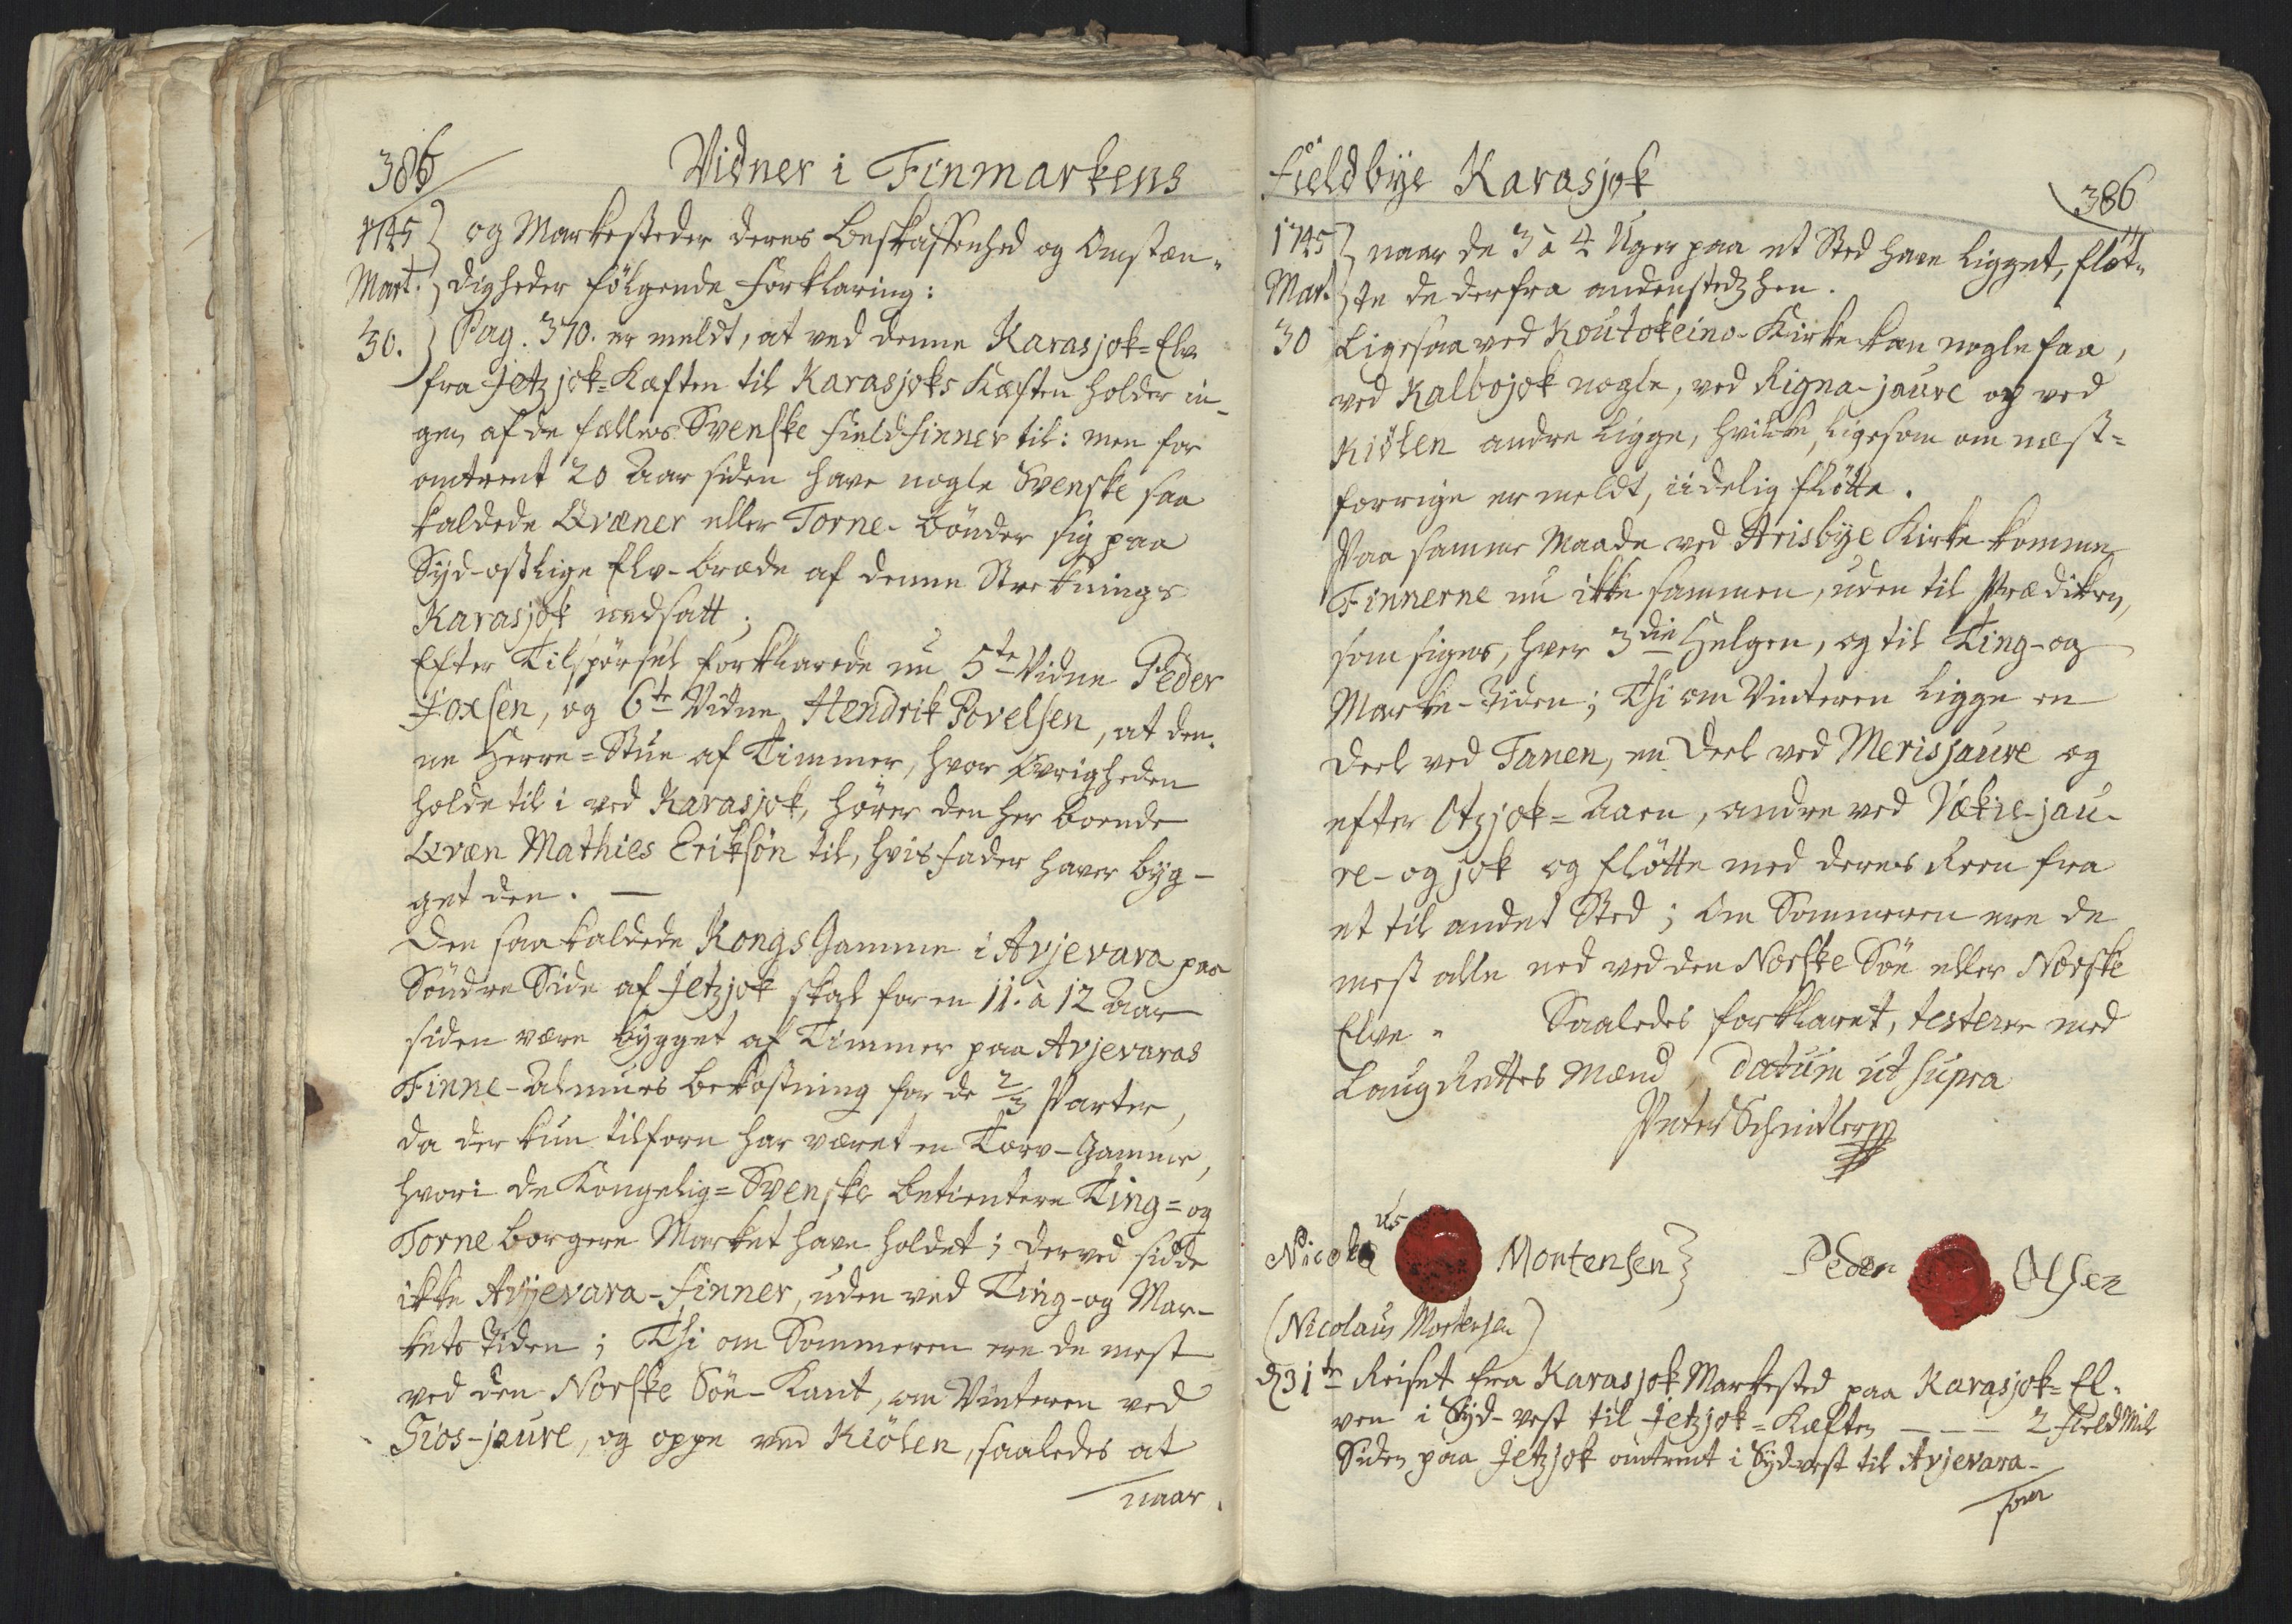 386
Vidner i Finmarkens
1745 } og Markesteder deres Beskaffenhed og Omstæn-
Mart. } digheder fölgende Forklaring:
30. } Pag. 370. er meldt, at ved denne Karasjok=Elv
fra Jetzjok=Kæften til Karasjoks Kæften holder in-
gen af de fælles Svenske Fieldfinner til: men for
omtrent 20 Aar siden have nogle Svenske saa
kaldede Qvæner eller Torne-bönder sig paa
Syd-ostlige Elv-bræde af denne Strekning
Karasjok nedsatt;
Efter Tilspörsel forklarede nu 5te Vidne Peder
Joxsen, og 6te Vidne Hendrik Povelsen, at den-
ne Herre=Stue af Timmer, hvor Övrigheden
holde til i ved Karasjok, hörer den her boende
Qvæn Mathies Eriksön til, hvis fader haver byg-
get den. —
Den saa kaldede KongsGamme i Avjevara paa
Söndre Side af Jetzjok skal for en 11. à 12 Aar
siden være bygget af Timmer paa Avjevaras
Finne-Almues bekostning for de 2/3 Parter,
da der kun tilforn har været en Torv-Gamme,
hvori de Kongelig=Svenske betientere Ting= og
Torne borgere Market have holdet; derved sidde
ikke Avjevara-Finner, uden ved Ting- og Mar-
kets Tiden; Thi om Sommeren ere de mest
ved den Norske Söe-Kant, om Vinteren ved
Gios-jaure, og oppe ved Kiölen, saaledes at
naar
Fieldbye Karasjok
386
1745 } naar de 3 à 4 Uger paa et Sted have ligget, flöt-
Mart. } te de derfra andenstedz hen.
30 Ligesaa ved Koutokeino-Kirke kan nogle faa,
ved Kalbojok nogle, ved Rigna-jaure og ved
Kiölen andre ligge, hvilke, ligesom om næst=
forrige er meldt, iidelig flötte.
Paa samme Maade ved Arisbye Kirke komme
Finnerne nu ikke sammen, uden til Prædiken,
som siges, hver 3die Helgen, og til Ting- og
Marke-Tiden; Thi om Vinteren ligge en
Deel ved Tanen, en Deel ved Merisjaure og
efter Otzjok=Aaen, andre ved Vækie-jau-
re- og jok og flötte med deres Reen fra
et til andet Sted; Om Sommeren ere de
mest alle ned ved den Norske Söe eller Norske
Elve. Saaledes forklaret, testerer med
LaugRettes Mænd, Datum ut supra
Peter Schnitler
Nicola us Mortensen } Peder Olsen
(Nicolaus Mortensen)
d 31te Reiset fra Karasjok Markested paa Karasjok=El-
ven i Syd-vest til Jetzjok=Kæften — — — 2 Field Mil
Siden paa Jetzjok omtrent i Sydvest til Avjevara-